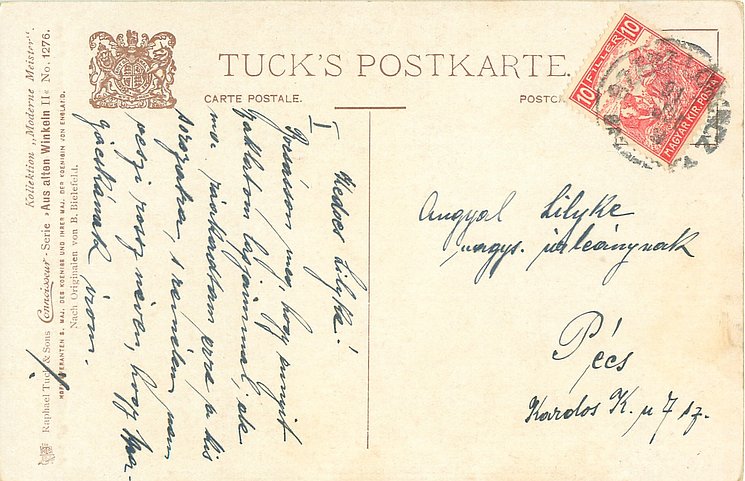 TUCK'S POSTKARTE.
CARTE POSTALE.
POSTCA
10 FILLER 10
MAGYAR KIR. POSTA
Kollektion „Moderne Meister".
Raphael Tuck & Sons Connoisseur-Serie »Aus alten Winkeln II« No. 1276.
HOFLIEFERANTEN S. MAJ. DES KOENIGS UND IHRER MAJ. DER KOENIGIN VON ENGLAND.
Nach Originalen von B. Bielefeld.
I
Kedves Lilyke!
Bocsásson meg, hogy annyit
zaklatom lapjaimmal, de
már ráakadtam erre a kis
sorozatra, s remélem nem
veszi rossz néven, hogy
írom.
Angyal Lilyke
nagys. úrleánynak
Pécs
Kardos K. u 7 sz.